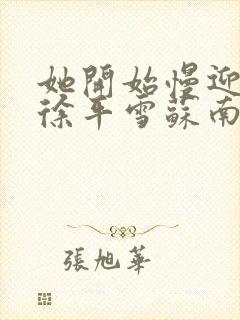 她開始慢迎
徐平雪蘇南
張旭華